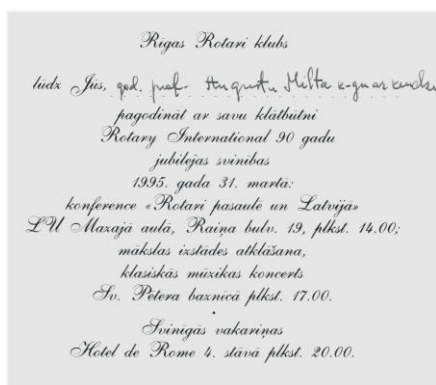 Rīgas Rotari klubs
lūdz Jūs, god. prof. Augustu Milta k-gu ar kundzi
pagodināt ar savu klātbūtni
Rotary International 90 gadu
jubilejas svinības
1995. gada 31. martā:
konference «Rotari pasaulē un Latvijā»
LU Mazajā aulā, Raiņa bulv. 19, plkst. 14.00;
mākslas izstādes atklāšana,
klasiskās mūzikas koncerts
Sv. Pētera baznīcā plkst. 17.00.
Svinīgās vakariņas
Hotel de Rome 4. stāvā plkst. 20.00.